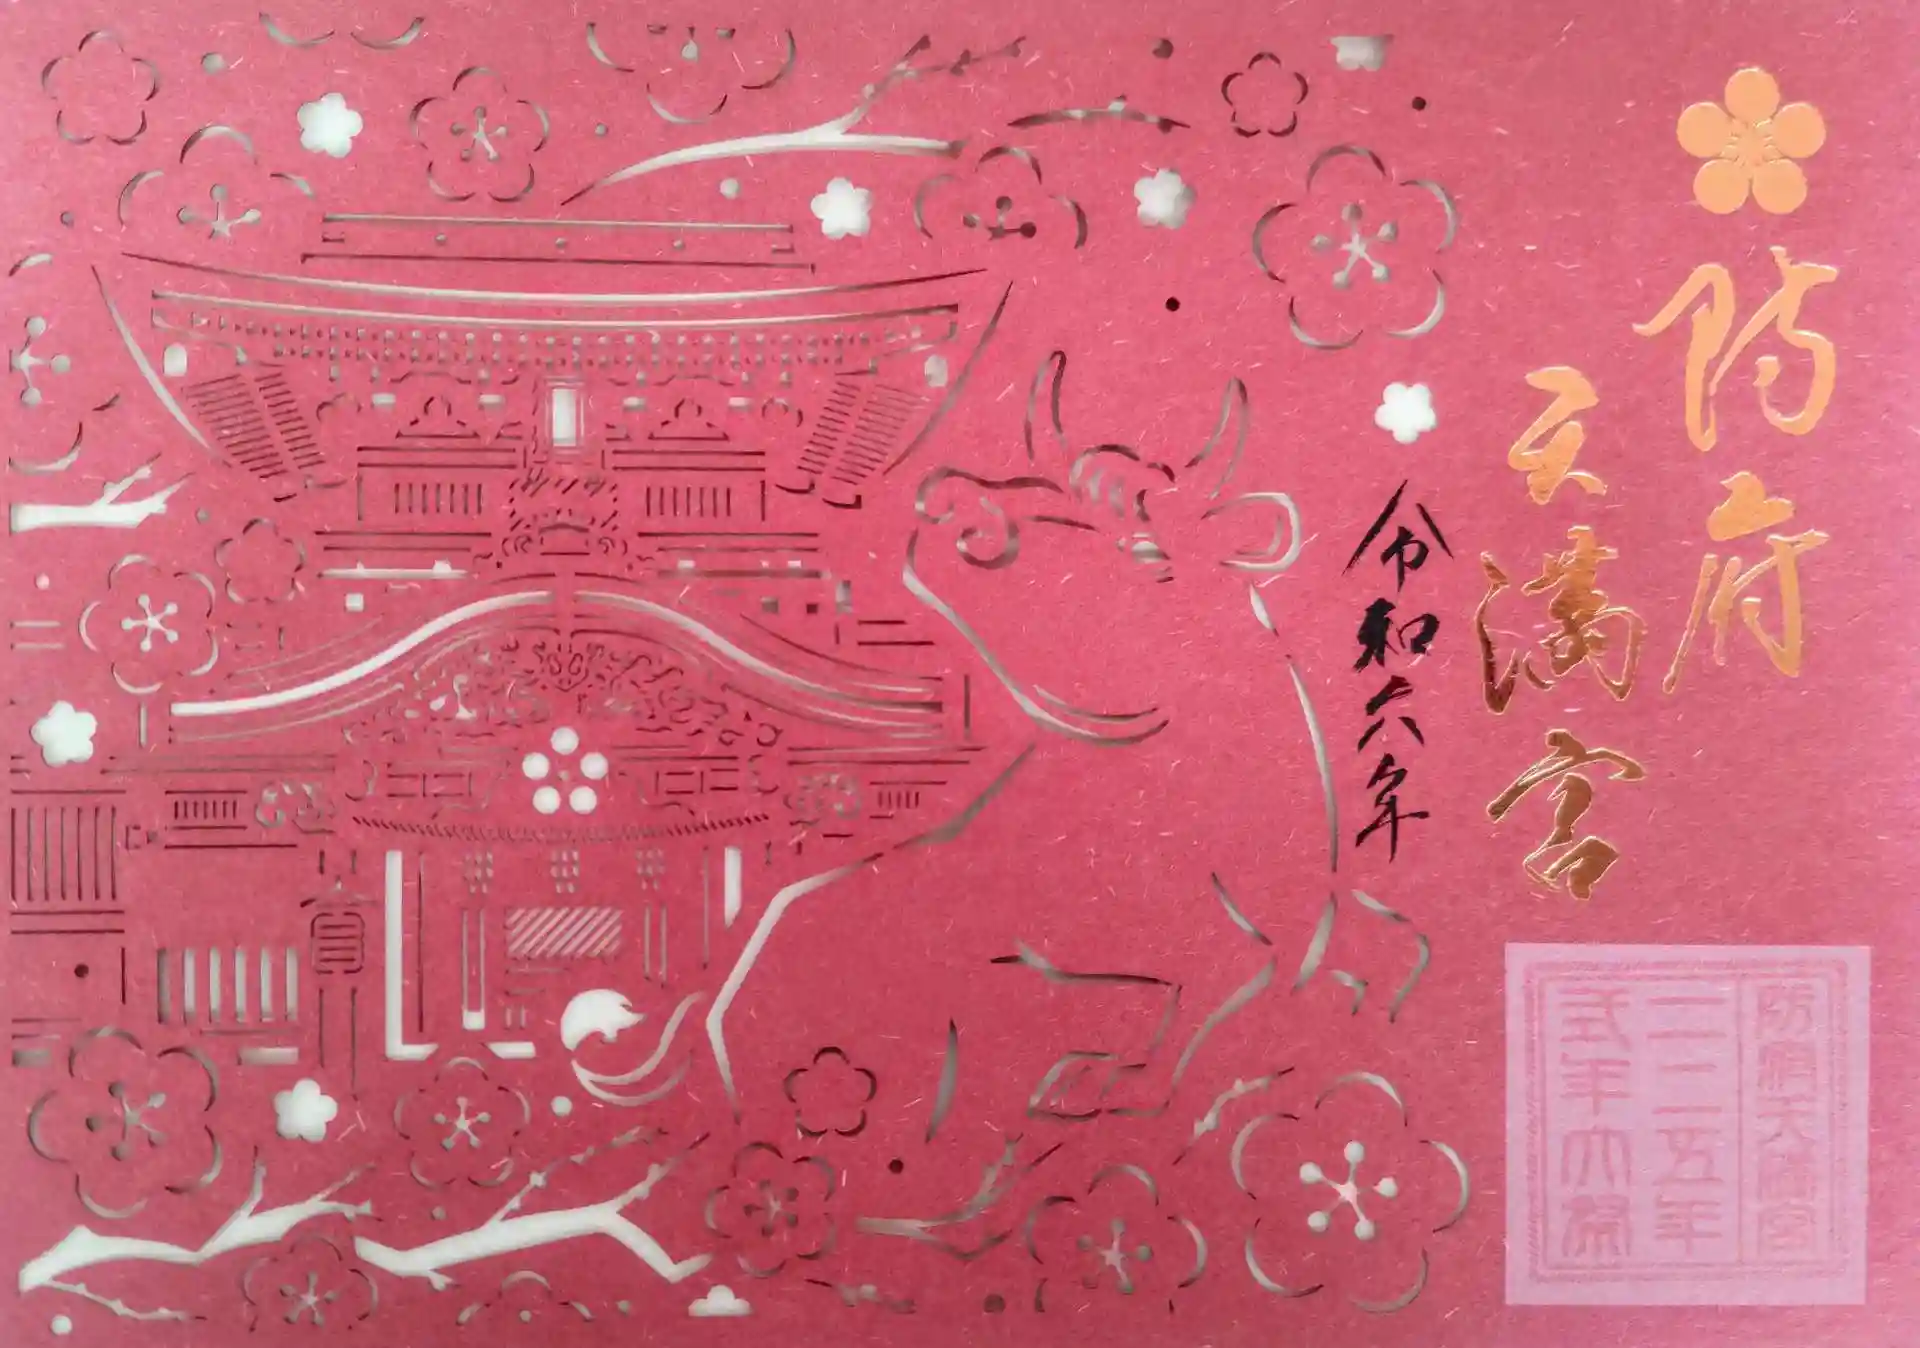 防府
天満宮
令和六年
防府天満宮
一一二五年
式年大祭